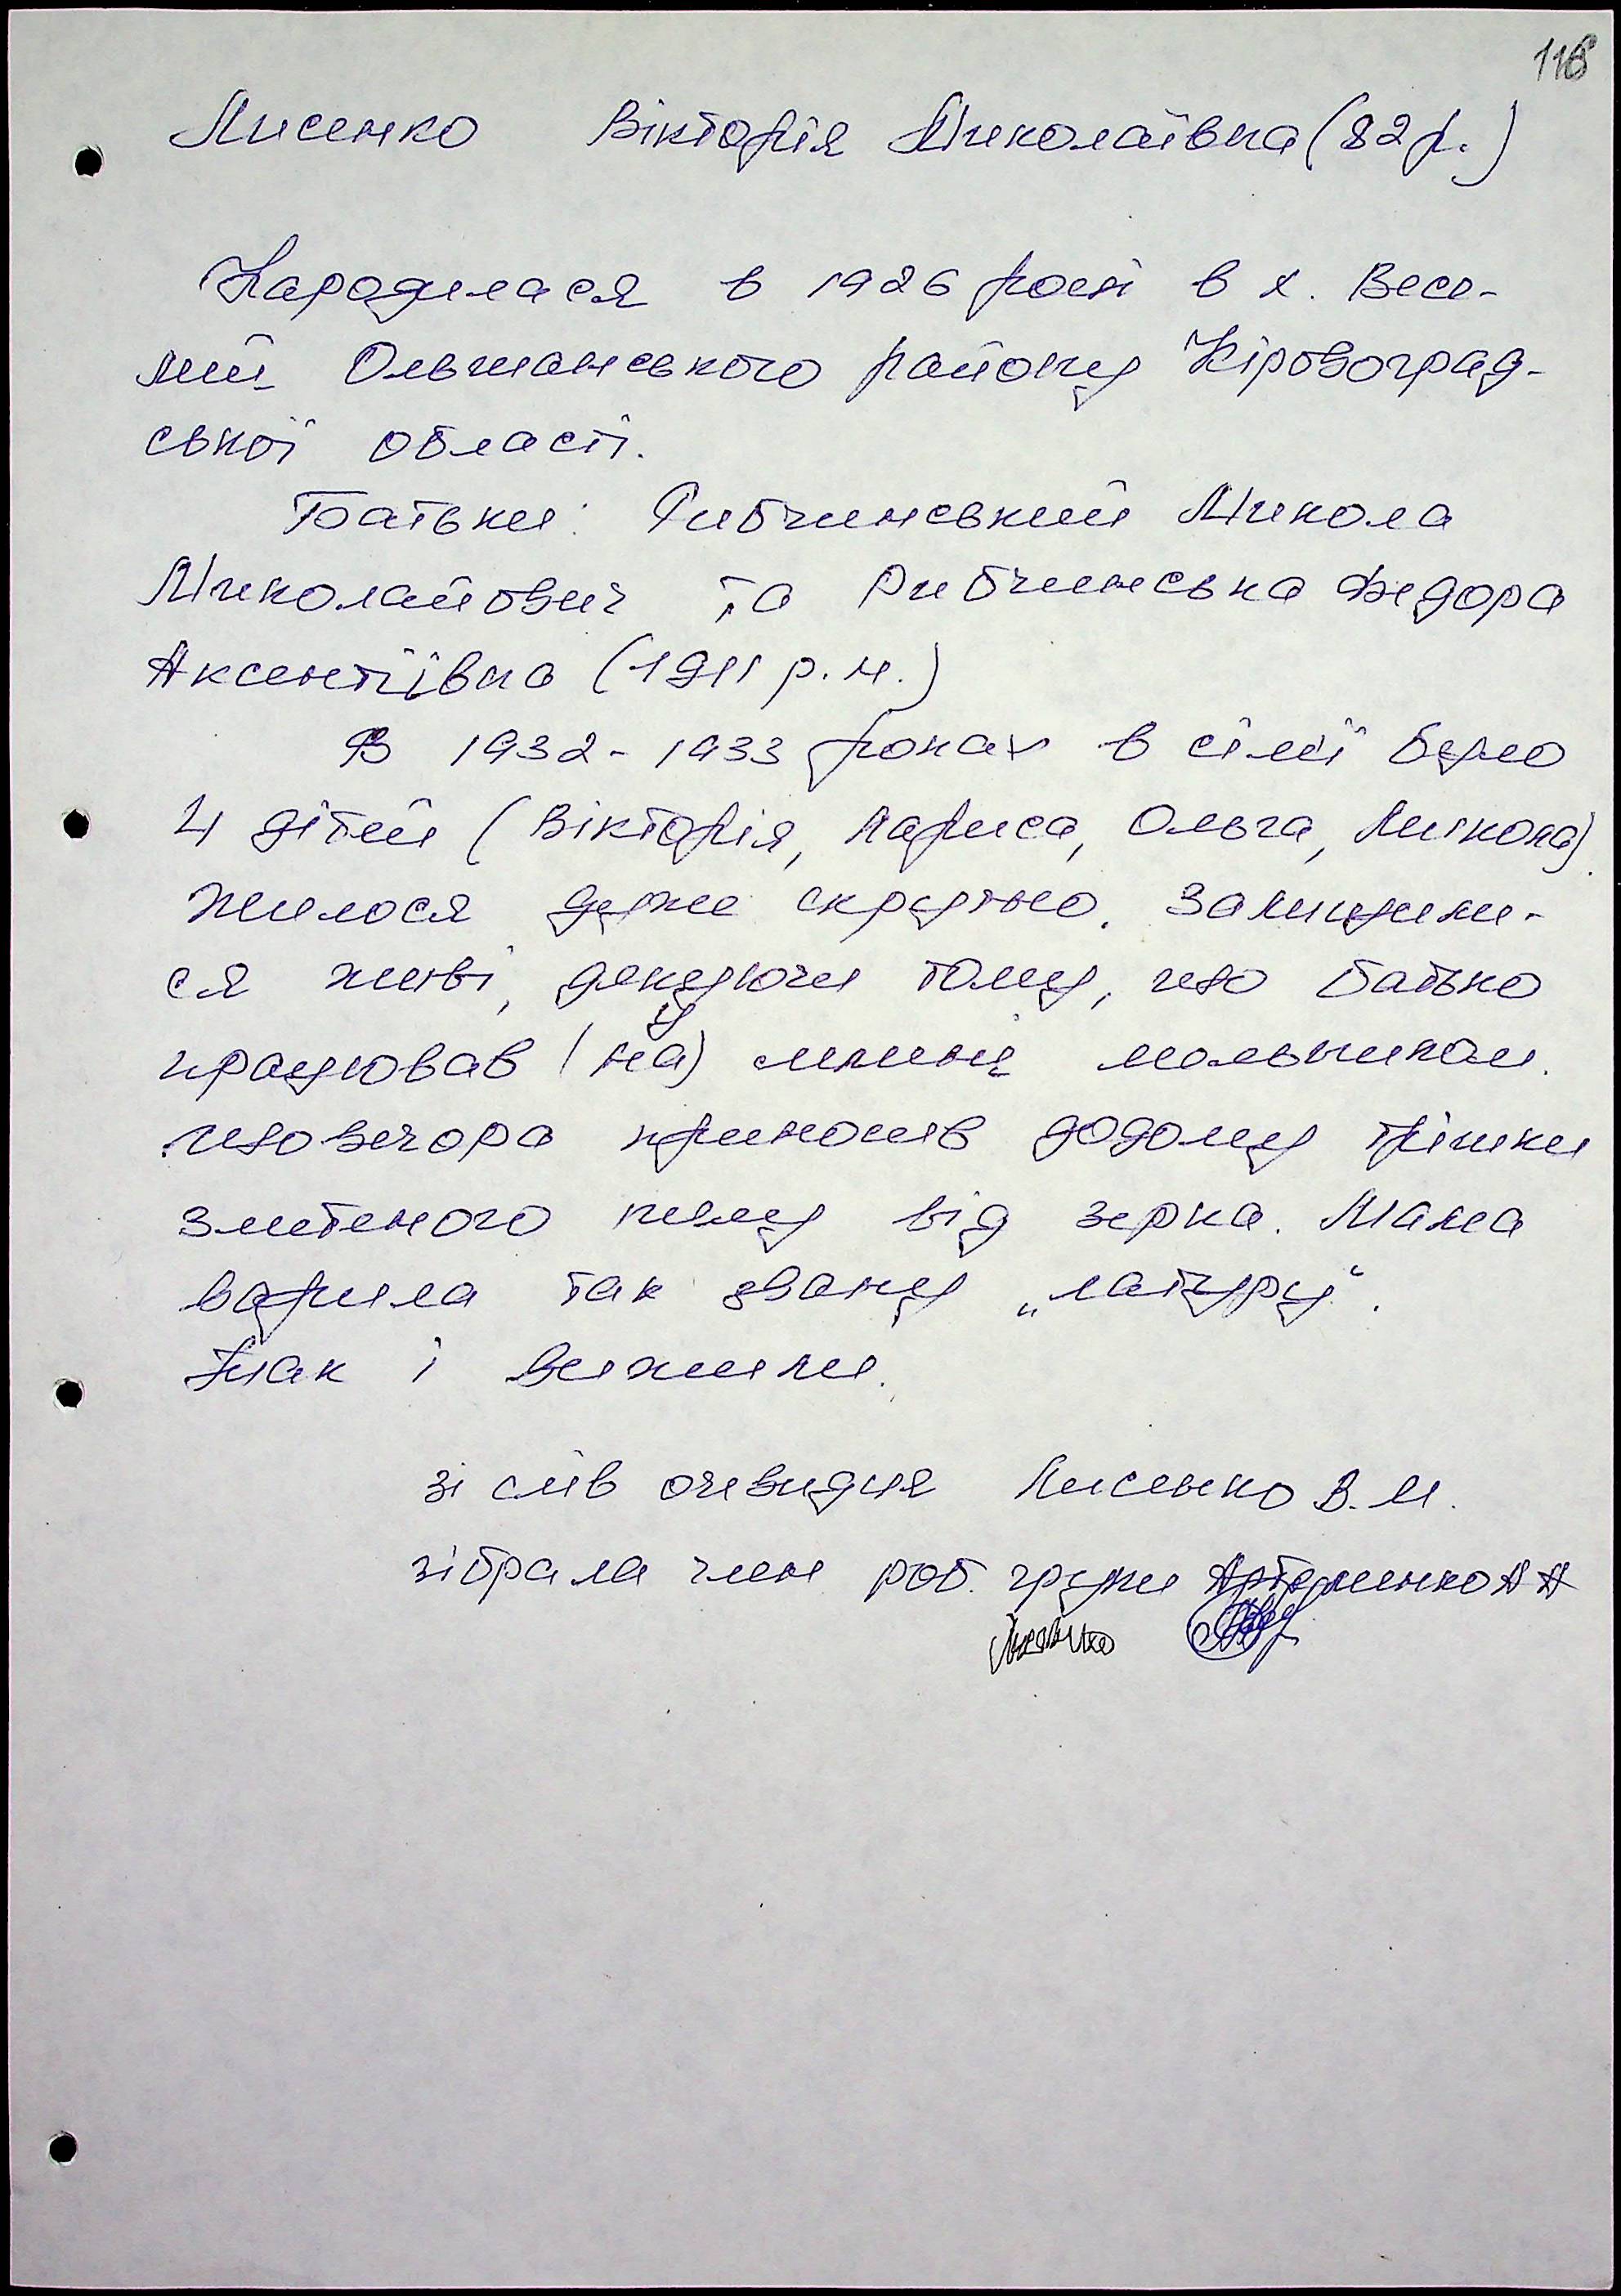 118
Лисенко Вікторія Миколаївна (82 р.)
Народилася в 1926 році в х. Весе-
лий Ольшанського району Кіровоград-
ської області.
Батьки: Рибчинський Микола
Миколайович та Рибчинська Федора
Аксентіївна (1911 р.н.)
В 1932-1933 роках в сім'ї було
4 дітей (Вікторія, Лариса, Ольга, Микола).
Жилося дуже скрутно. Залишили-
ся живі, дякуючи тому, що батько
працював (на) у млині мельником.
Щовечора приносив додому трішки
зметеного пилу від зерна. Мама
варила так звану „латуру".
Так і вижили.
зі слів очевидця Лисенко В.М.
зібрала член роб. групи Артеменко А А